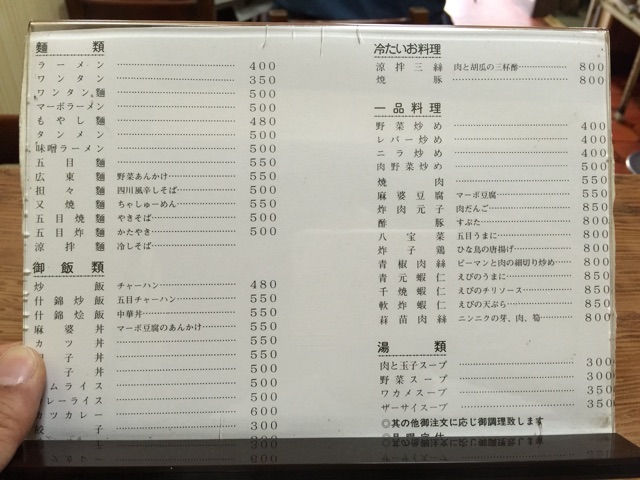 麺類
ラーメン……400
ワンタン……350
ワンタン麺……500
マーボラーメン……500
もやし麺……480
タンメン……500
味噌ラーメン……500
五目麺……550
広東麺 野菜あんかけ……550
担々麺 四川風辛しそば……550
叉焼麺 ちゃしゅーめん……550
五目焼麺 やきそば……500
五目炸麺 かたやき……550
涼拌麺 冷しそば……
御飯類
炒飯 チャーハン……480
什錦炒飯 五目チャーハン……550
什錦烩飯 中華丼……550
麻婆丼 マーボ豆腐のあんかけ……550
カツ丼……550
子丼……550
子丼……500
ムライス……500
レーライス……500
カツカレー……600
餃子……300
冷たいお料理
涼拌三絲 肉と胡瓜の三杯酢……800
焼豚……800
一品料理
野菜炒め……400
レバー炒め……400
ニラ炒め……400
肉野菜炒め……500
焼肉……550
麻婆豆腐 マーボ豆腐……550
炸肉元子 肉だんご……850
酢豚 すぶた……800
八宝菜 五目うまに……800
炸子鶏 ひな鳥の唐揚げ……800
青椒肉絲 ピーマンと肉の細切り炒め……800
青元蝦仁 えびのうまに……850
干焼蝦仁 えびのチリソース……850
軟炸蝦仁 えびの天ぷら……850
蒜苗肉絲 ニンニクの芽、肉、筍……800
湯類
肉と玉子スープ……300
野菜スープ……300
ワカメスープ……350
ザーサイスープ……350
◎其の他御注文に応じ御調理致します